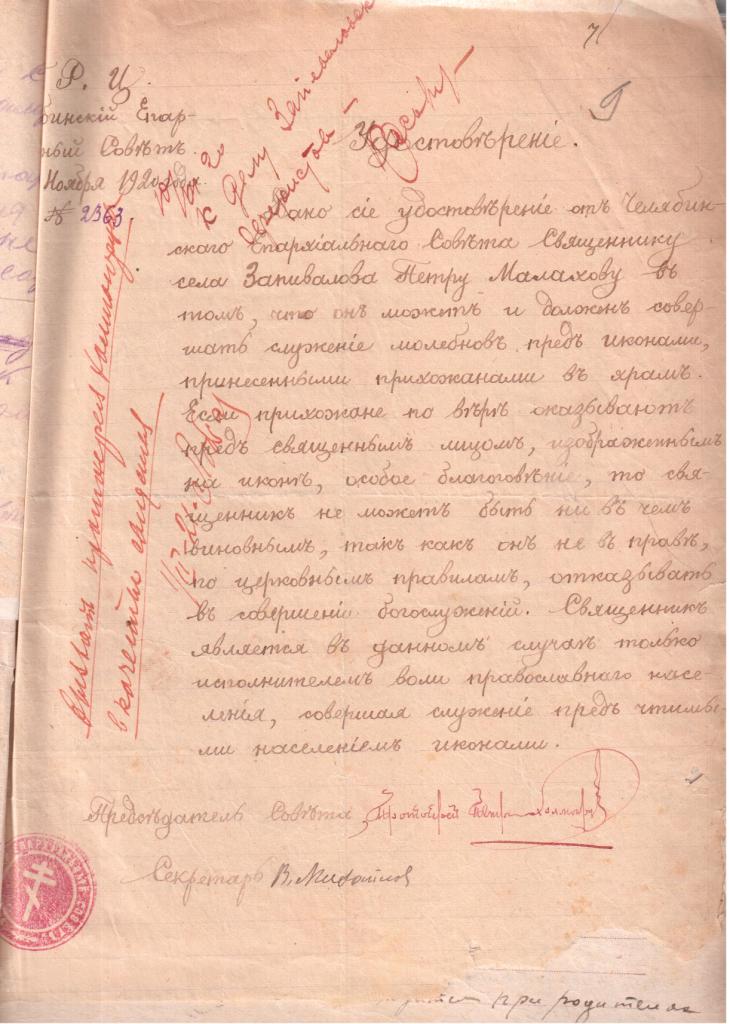 7
9
Р. И.
бинскій Епар-
ный Совѣтъ.
Ноября 1920 года.
№ 2363.
10/XI 20
к делу Запеваловск
Удостовѣреніе.
Дано сіе удостовѣреніе отъ Челябин-
скаго Епархіальнаго Совѣта Священнику
села Запивалова Петру Малахову въ
томъ, что онъ можетъ и долженъ совер-
шать служеніе молебновъ предъ иконами,
принесенными прихожанами въ храмъ.
Если прихожане по вѣрѣ оказываютъ
предъ священнымъ лицомъ, изображеннымъ
на иконѣ, особое благоговѣніе, то свя-
щенникъ не можетъ быть ни въ чемъ
виновнымъ, такъ какъ онъ не въ правѣ,
по церковнымъ правиламъ, отказывать
въ совершеніи богослуженій. Священникъ
является въ данномъ случаѣ только
исполнителемъ воли православнаго насе-
ленія, совершая служеніе предъ чтимы-
ми населеніемъ иконами.
вызвать протоиерея Холмогорцева
в качестве
Предсѣдатель Совѣта Протоіерей
Секретарь В.
при родителях